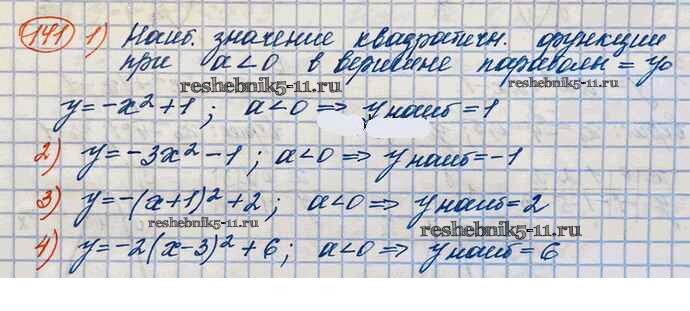 141 1) Наиб. значение квадратичн. функции
при a<0 в вершине параболы = y₀
reshebnik5-11.ru
reshebnik5-11.ru
y=-x²+1; a<0 ⇒ y наиб=1
2) y=-3x²-1; a<0 ⇒ y наиб=-1
3) y=-(x+1)²+2; a<0 ⇒ y наиб=2
reshebnik5-11.ru
reshebnik5-11.ru
4) y=-2(x-3)²+6; a<0 ⇒ y наиб=6